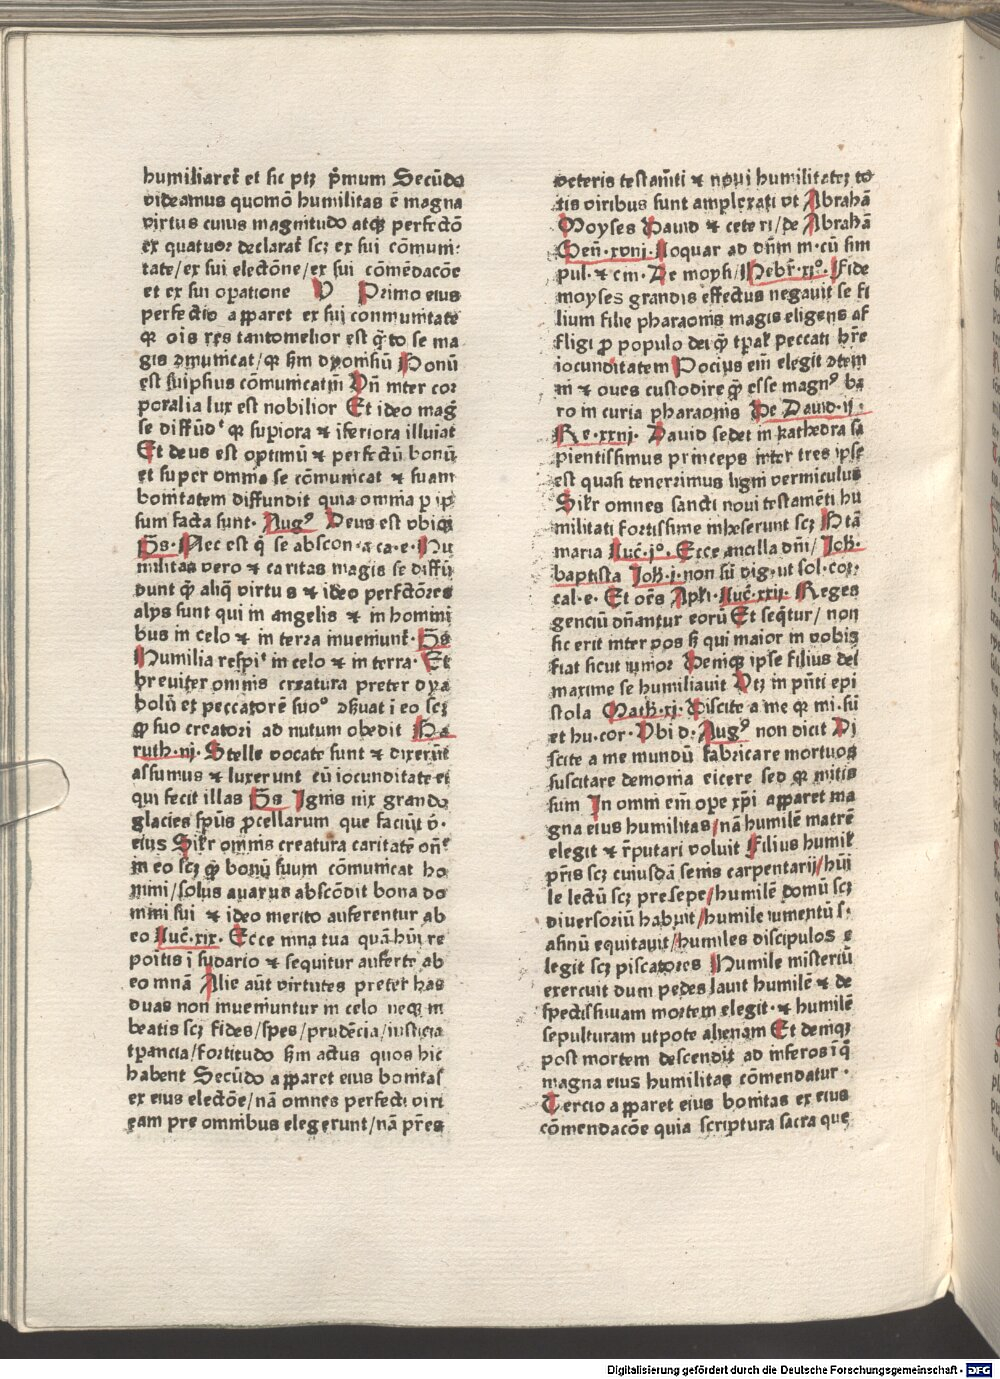 humiliaret̄ et sic ptꝫ p̄mum Secūdo
videamus quomō humilitas ē magna
virtus cuius magnitudo atqꝫ perfectō
ex quatuor declarat̄ scꝫ ex sui cōmuni-
tate/ex sui electōne/ex sui cōmēdacōe
et ex sui oꝑatione V Primo eius
perfectio aꝑparet ex sui conmunitate
qꝛ ois res tantomelior est q̄to se ma
gis ꝯmunicat/qꝛ ẜm dyonisiū Bonū
est suipsius cōmunicatiū Vn̄ inter cor
poralia lux est nobilior Et ideo maḡ
se diffūdꝰ qꝛ suꝑiora ⁊ iferiora illuiat
Et deus est optimū ⁊ perfectū bonū
et super omnia se cōmunicat ⁊ suam
bonitatem diffundit quia omnia ꝑ ip
sum facta sunt. Augꝰ Deus est vbiqꝫ
G̅s. Nec est q̇ se abscon. a ca. e. Hu
militas vero ⁊ caritas magis se diffū
dunt q̄ aliq̄ virtus ⁊ ideo perfectōres
alys sunt qui in angelis ⁊ in homini
bus in celo ⁊ in terra inueniunt̄. G̅s
Humilia respiᵗ in celo ⁊ in terra. Et
breuiter omnis creatura preter dya
bolū et peccatorē suoꝰ ꝯẜuat i eo scꝫ
ꝙ suo creatori ad nutum obedit Ba
ruth.iij. Stelle vocate sunt ⁊ dixerūt
assumus ⁊ luxerunt eū iocunditate ei
qui fecit illas G̅s Ignis nix grando
glacies sp̄us ꝓcellarum que faciūt v̇.
eius Silr omnis creatura caritatē on̄ᵗ
in eo scꝫ ꝙ bonū suum cōmunicat ho
mini/solus auarus abscōdit bona do
mini sui ⁊ ideo merito auferentur ab
eo Luc̄.xix. Ecce mna tua quā hūi re
poitis i sudario ⁊ sequitur auferte ab
eo mnā Alie aūt virtutes preter has
duas non inueniuntur in celo neqꝫ in
beatis scꝫ fides/spes/prudēcia/iusticia
tꝑancia/fortitudo ẜm actus quos hic
habent Secūdo aꝑparet eius bonitas
ex eius electōe/nā omnes perfecti virt
eam pre omnibus elegerunt/nā pr̄es
veteris testamēti ⁊ noui humilitatez to
tis viribus sunt amplexati vt Abrahā
Moyses Dauid ⁊ ceteri/de Abrahā
Gen̄.xviij. Loquar ad dn̄m m. cū sim
pul. ⁊ cin. De moysi/Hebr̄.xjº. Fide
moyses grandis effectus negauit se fi
lium filie pharaonis magis eligens af
fligi ꝓ populo dei q̄ tꝑal peccati hr̄e
iocunditatem Pocius eni elegit ꝯtem
ni ⁊ oues custodire q̄ esse magnꝰ ba
ro in curia pharaonis De Dauid.ij.
Re.xxiij. Dauid sedet in kathedra sa
pientissimus princeps inter tres ipse
est quasi tenerrimus ligni vermiculus
Silr omnes sancti noui testamēti hu
militati fortissime inheserunt scꝫ btā
maria Luc̄.jº. Ecce ancilla dn̄i/Joh̄.
baptista Joh̄.j. non sū dig. ut sol. cor.
cal. e. Et oēs Apl̄i. Luc̄.xxij. Reges
genciū dn̄antur eorū Et seq̄tur/non
sic erit inter vos sꝫ qui maior in vobis
fiat sicut iunior Deniqꝫ ipse filius dei
maxime se humiliauit Vtꝫ in pn̄ti epi
stola Math.xj. Discite a me qꝛ mi. sū
et hu. cor. Vbi d. Augꝰ non dicit Di
scite a me mundū fabricare mortuos
suscitare demonia eicere sed qꝛ mitis
sum In omni em̄ oꝑe xp̄i apꝑaret ma
gna eius humilitas/nā humilē matrē
elegit ⁊ r̄putari voluit Filius humil
pr̄is scꝫ cuiusdā senis carpentarij/hūi
le lectū scꝫ presepe/humilē domū scꝫ
diuersoriū habuit/humile iumentū s.
asinū equitauit/humiles discipulos e
legit scꝫ piscatores Humile misteriū
exercuit dum pedes lauit humilē ⁊ de
spectissimam mortem elegit. ⁊ humilē
sepulturam utpote alienam Et deniqꝫ
post mortem descendit ad inferos ī q̄
magna eius humilitas cōmendatur.
Tercio aꝑparet eius bonitas ex eius
cōmendacōe quia scriptura sacra que
Digitalisierung gefördert durch die Deutsche Forschungsgemeinschaft - DFG